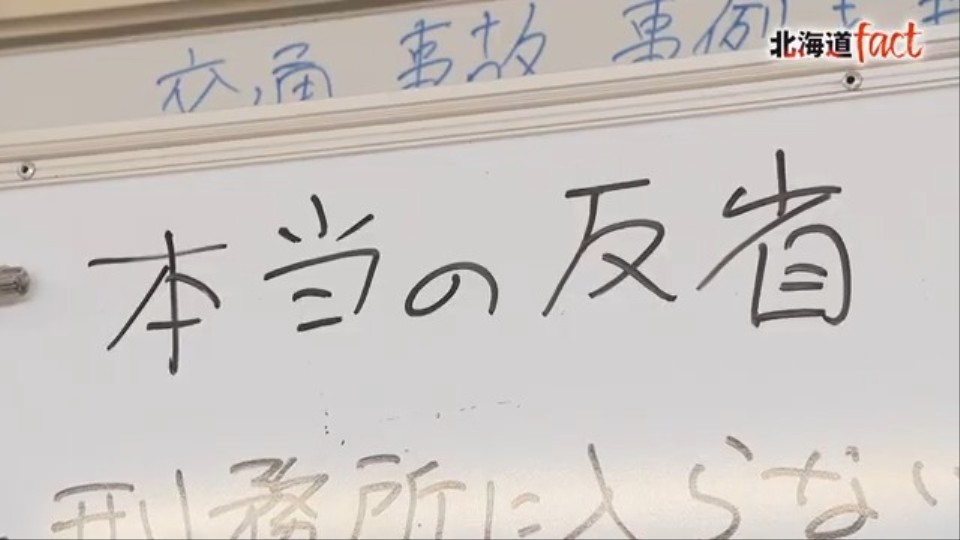 北海道fact
交通事故 事例
本当の反省
刑務所に入らない